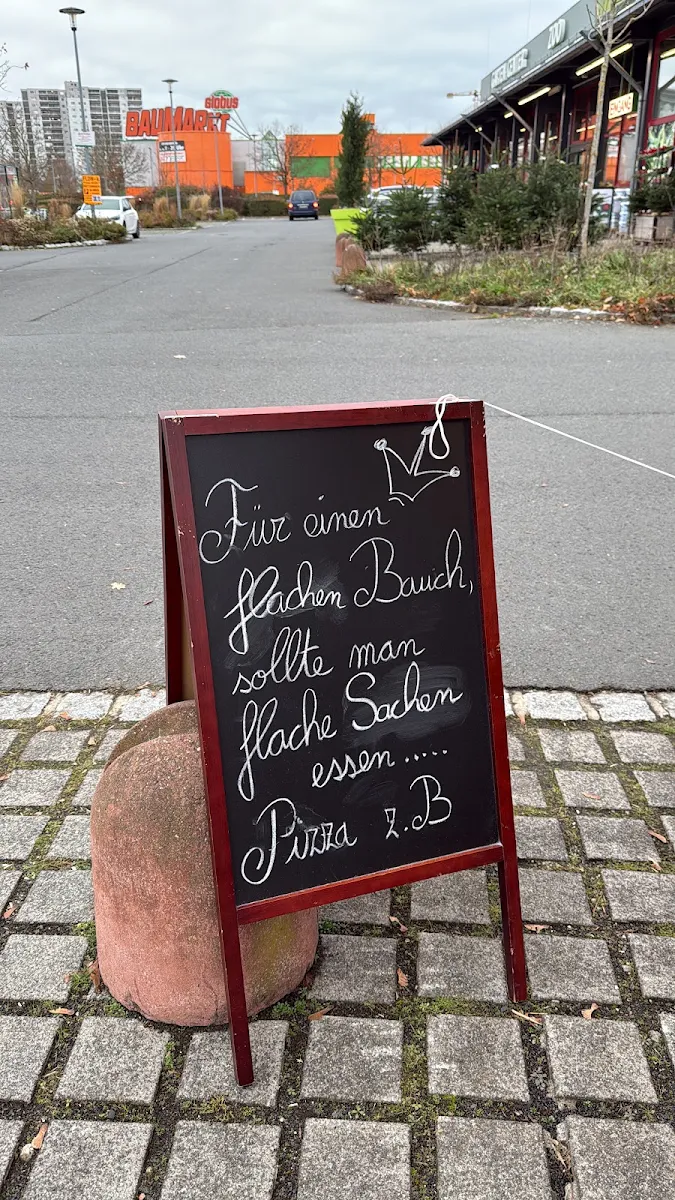 GLOBUS
BAUMARKT
ZOO
EINGANG
Für einen
flachen Bauch,
sollte man
flache Sachen
essen.....
Pizza z.B